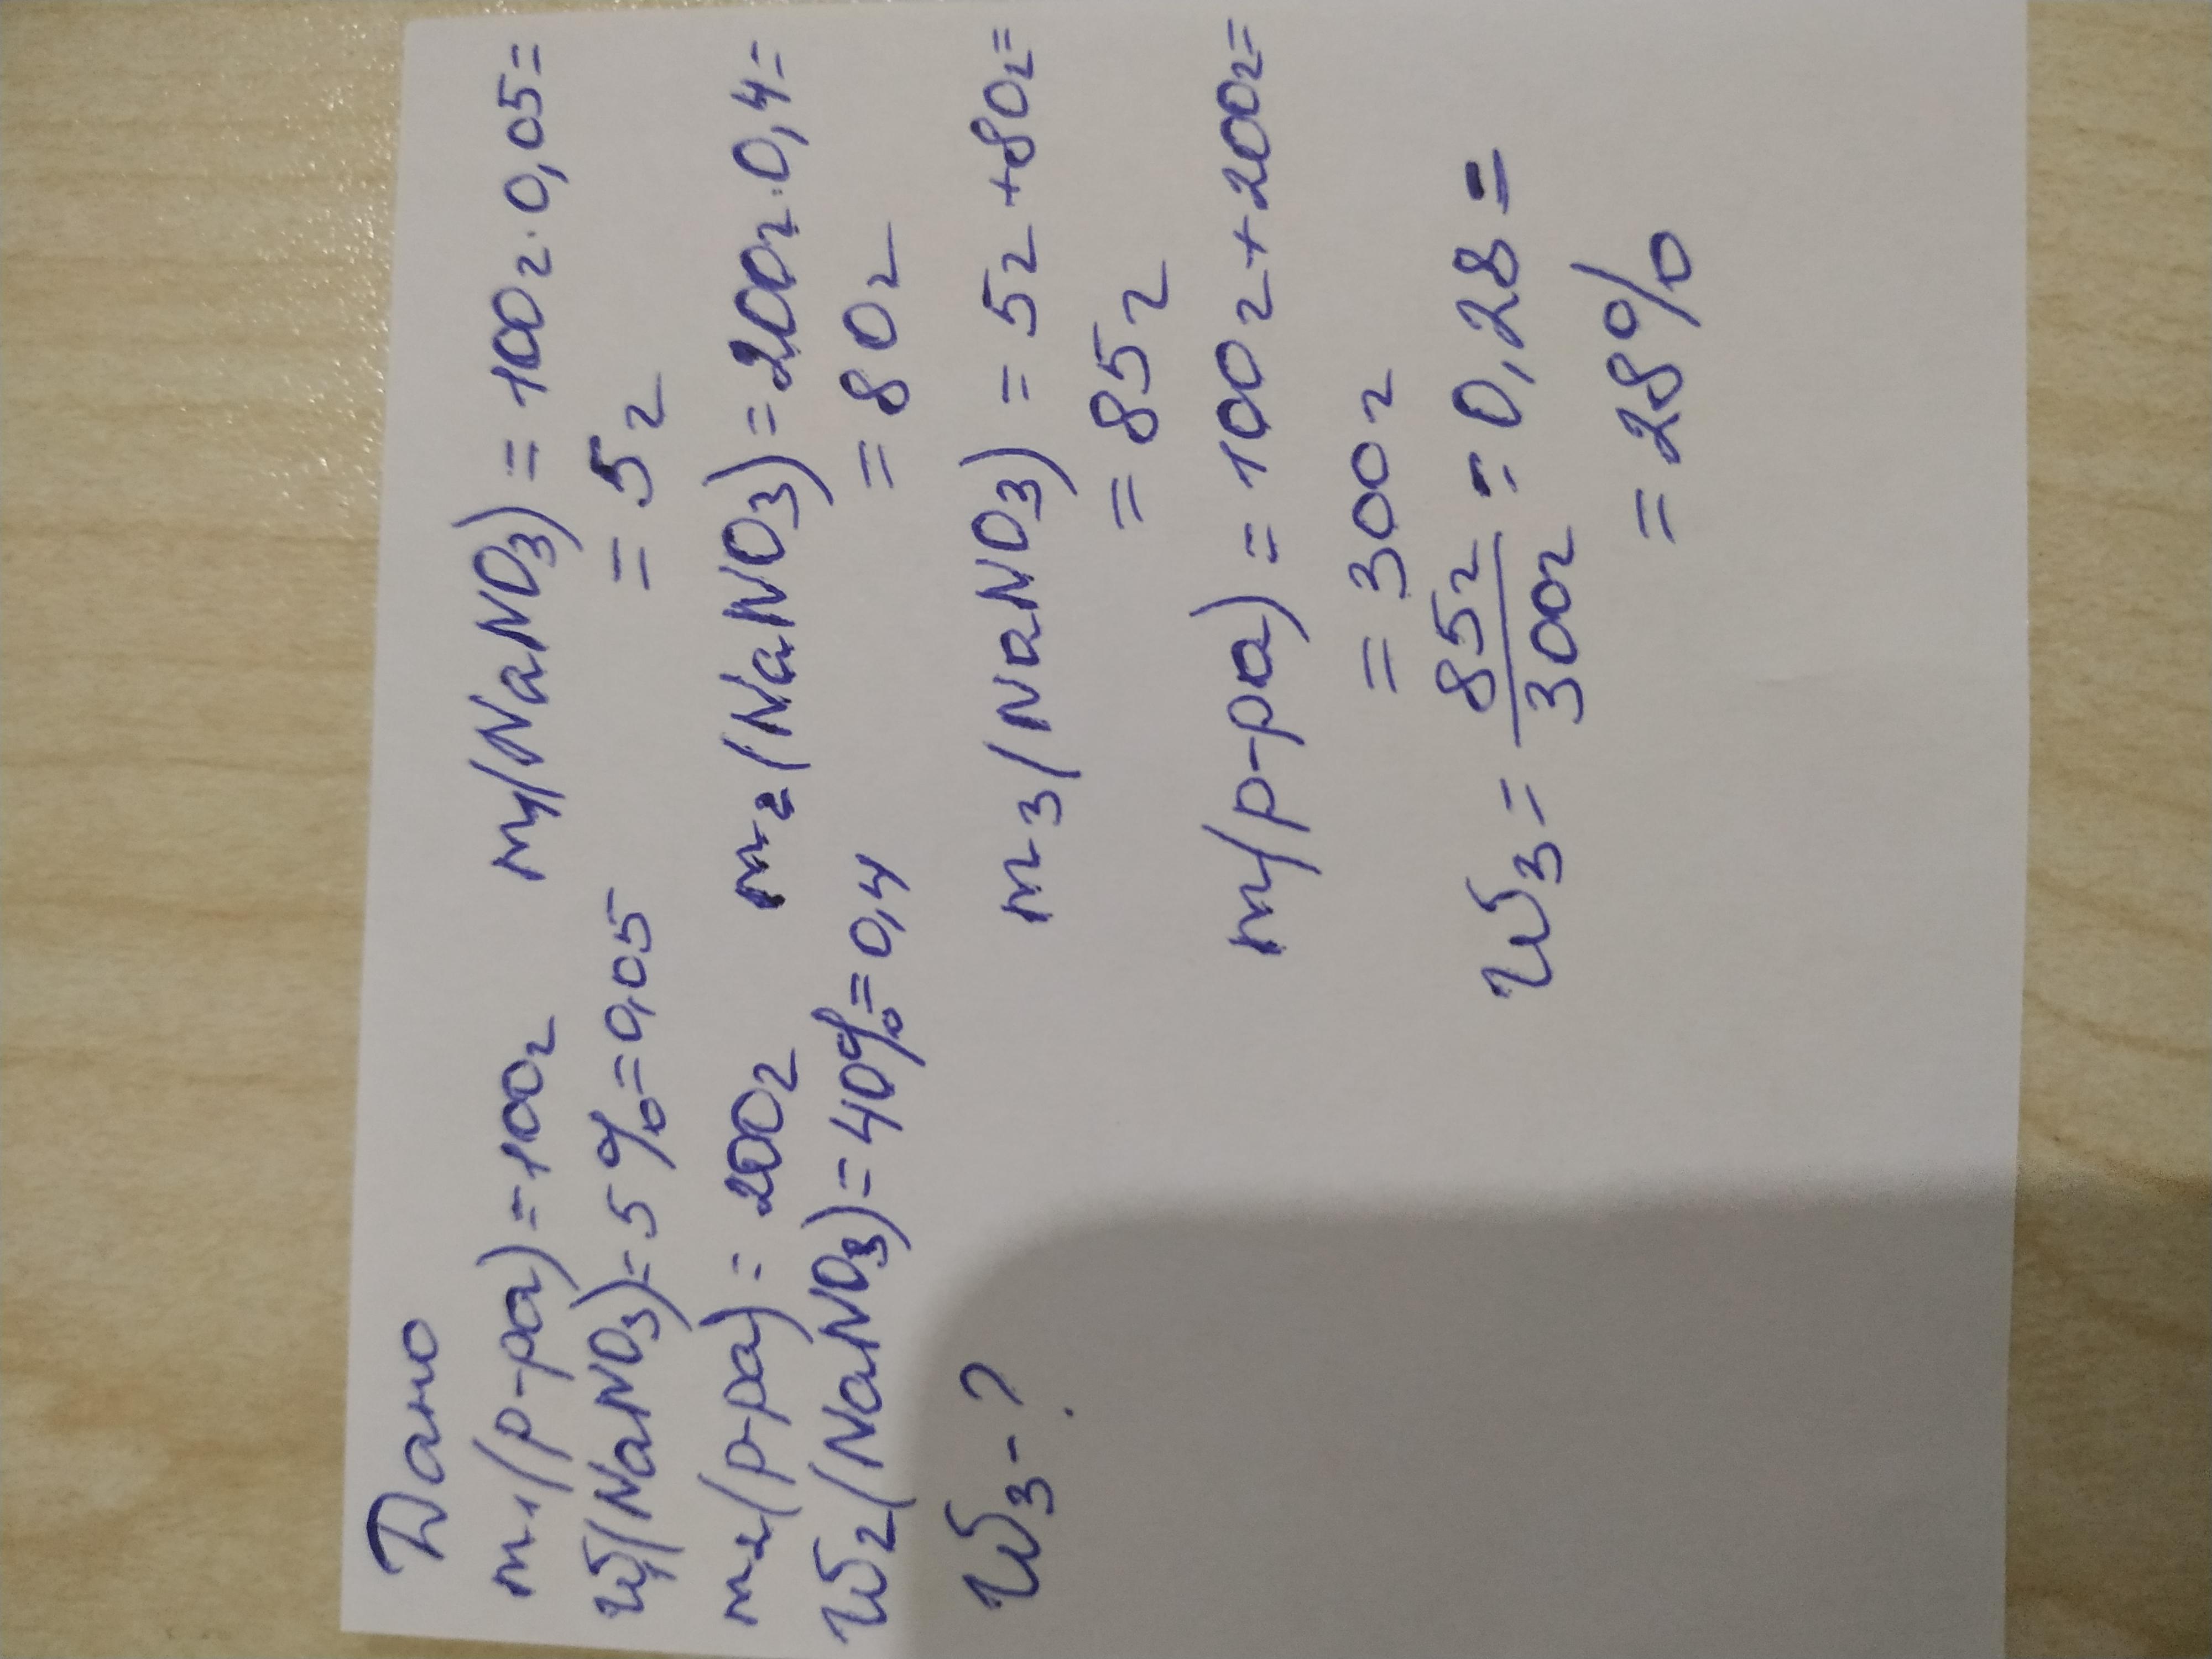 Дано
m₁(р-ра)=100г
W₁(NaNO₃)=5%=0,05
m₂(р-ра)=200г
W₂(NaNO₃)=40%=0,4
W₃-?
m₁(NaNO₃)=100г·0,05=
=5г
m₂(NaNO₃)=200г·0,4=
=80г
m₃(NaNO₃)=5г+80г=
=85г
m(р-ра)=100г+200г=
=300г
W₃=85г/300г=0,28=
=28%